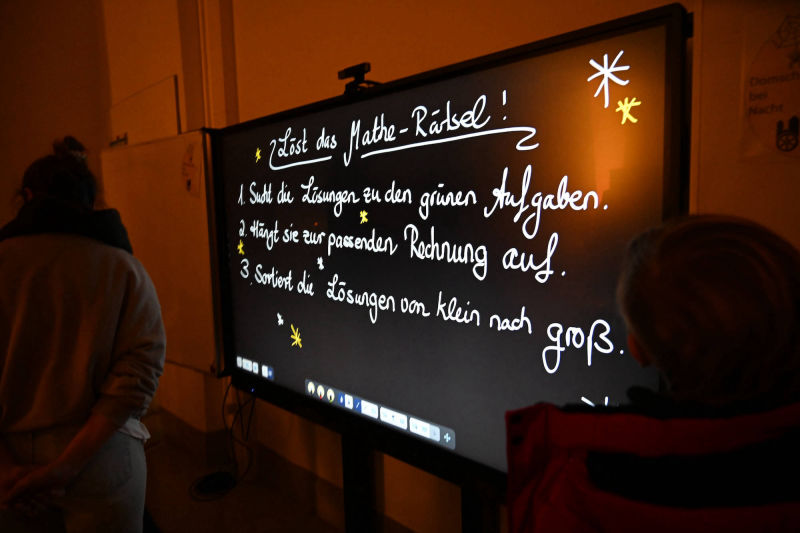 Löst das Mathe-Rätsel!
1. Sucht die Lösungen zu den grünen Aufgaben.
2. Hängt sie zur passenden Rechnung auf.
3. Sortiert die Lösungen von klein nach groß.
Domsch
bei
Nacht